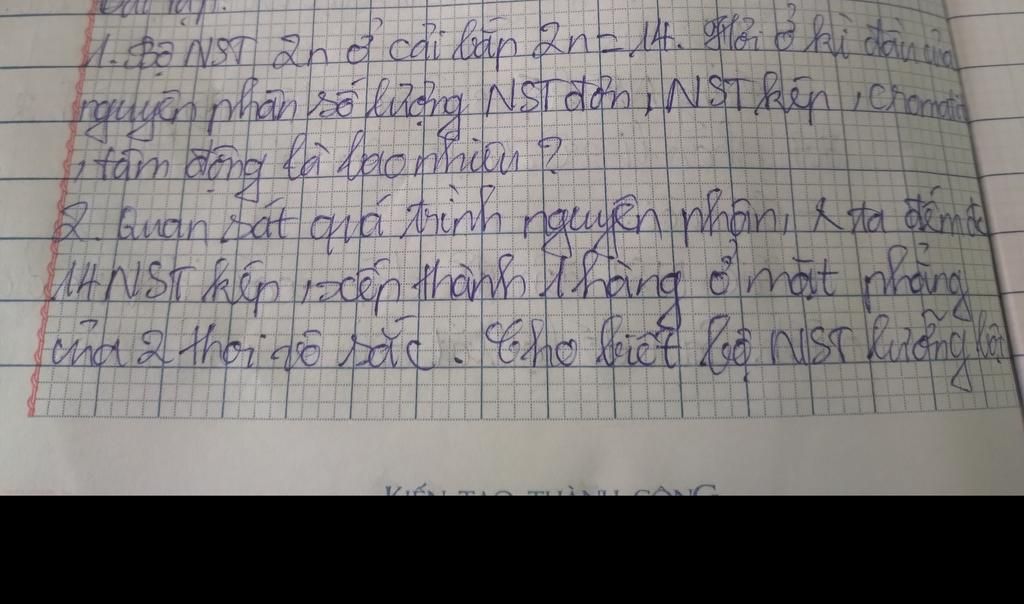 Bài tập.
1. Bộ NST 2n ở cải bắp 2n = 14. Hỏi ở kì đầu của
nguyên phân số lượng NST đơn, NST kép, cromatit
, tâm động là bao nhiêu?
2. Quan sát quá trình nguyên phân, ta đếm đc
14 NST kép, xếp thành 1 hàng ở mặt phẳng
của 2 thoi vô sắc. Cho biết bộ NST lưỡng bội
KIẾN TẠO THÀNH CÔNG